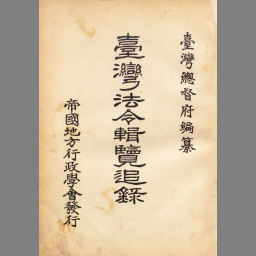 臺灣總督府編纂
臺灣法令輯覽追錄
帝國地方行政學會發行